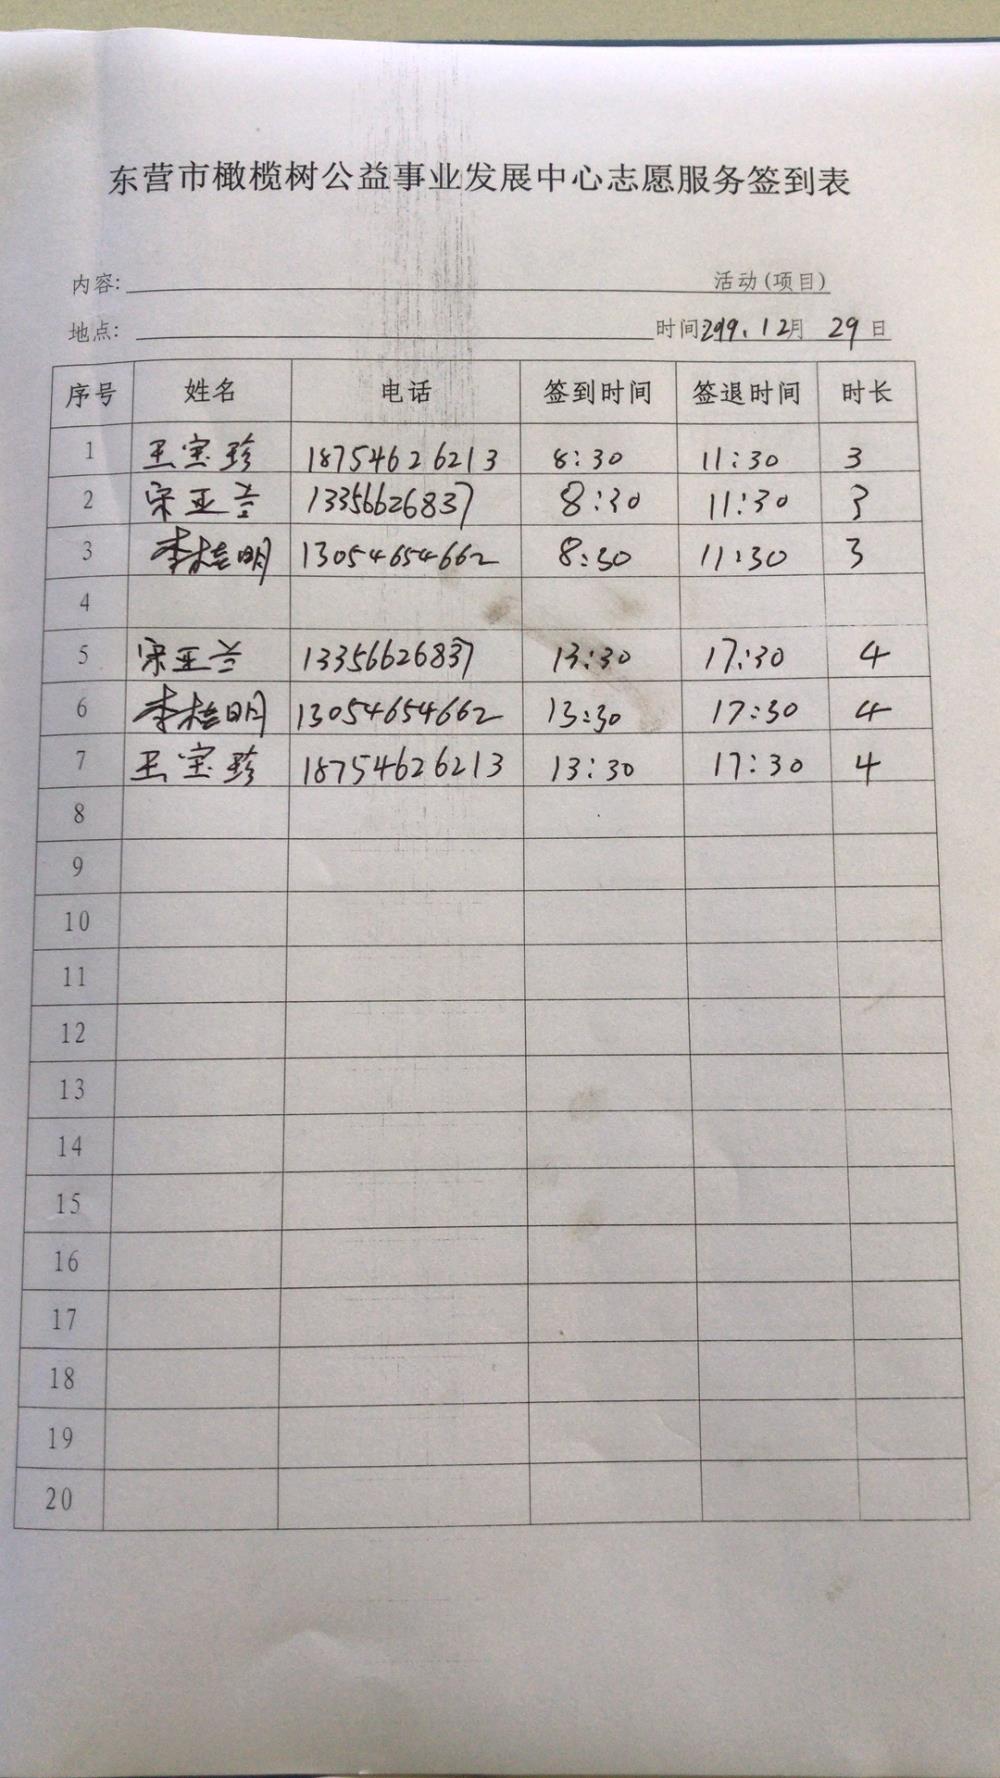 东营市橄榄树公益事业发展中心志愿服务签到表
内容: 活动(项目)
地点: 时间2019.12月 29日
序号 姓名 电话 签到时间 签退时间 时长
1 王宝珍 18754626213 8:30 11:30 3
2 宋亚兰 13356626837 8:30 11:30 3
3 李桂明 13054654662 8:30 11:30 3
4
5 宋亚兰 13356626837 13:30 17:30 4
6 李桂明 13054654662 13:30 17:30 4
7 王宝珍 18754626213 13:30 17:30 4
8
9
10
11
12
13
14
15
16
17
18
19
20